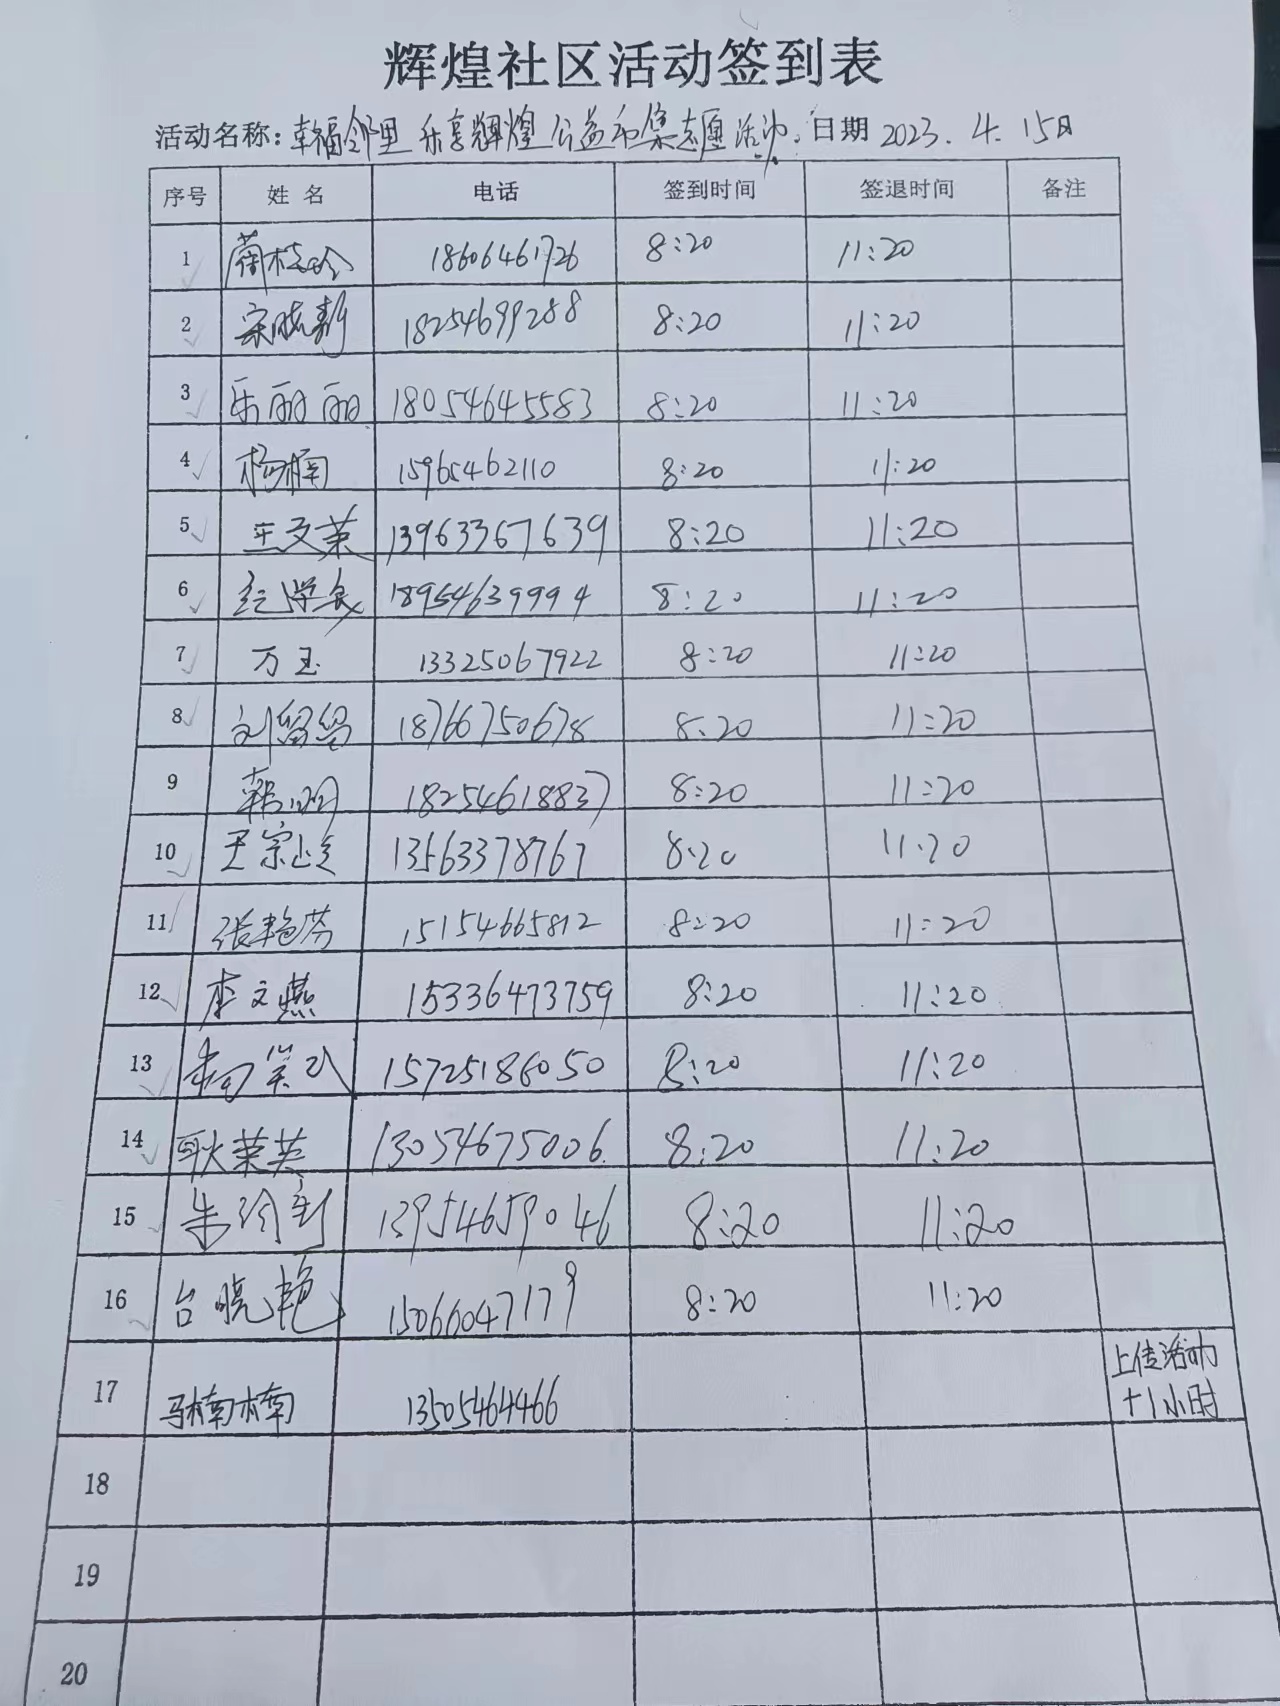 辉煌社区活动签到表
活动名称: 幸福邻里 乐享辉煌 公益和集志愿活动. 日期 2023. 4. 15日
序号 姓 名 电话 签到时间 签退时间 备注
1 18606461726 8:20 11:20
2 宋晓新 18254699288 8:20 11:20
3 乐丽丽 18054645583 8:20 11:20
4 杨楠 15965462110 8:20 11:20
5 王文荣 13963367639 8:20 11:20
6 18954639994 8:20 11:20
7 万玉 13325067922 8:20 11:20
8 刘留留 18766750678 8:20 11:20
9 韩 18254618837 8:20 11:20
10 王宗 13563378767 8:20 11:20
11 张艳芬 15154665812 8:20 11:20
12 李文燕 15336473759 8:20 11:20
13 15725186050 8:20 11:20
14 耿荣英 13054675006 8:20 11:20
15 朱 13954659046 8:20 11:20
16 台晓艳 15066047179 8:20 11:20
17 马楠楠 13505464466 上传活动
+1小时
18
19
20